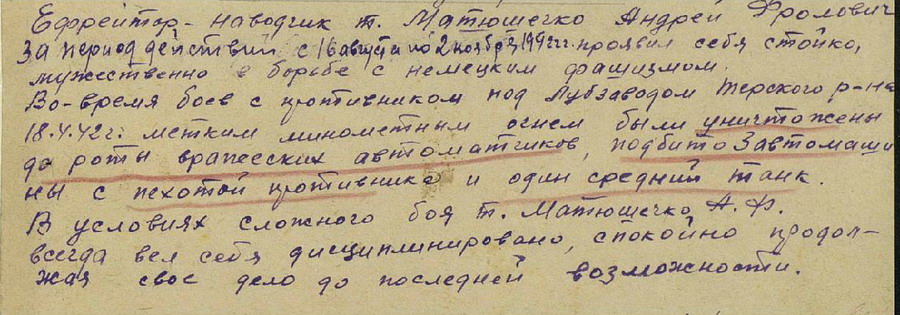 Ефрейтор-наводчик т. Матюшечко Андрей Фролович
за период действий с 16 августа по 2 ноября 1942 гг. проявил себя стойко,
мужественно в борьбе с немецким фашизмом.
Во-время боев с противником под Лубзаводом Терского р-на
18.X.42 г. метким минометным огнем были уничтожены
до роты вражеских автоматчиков, подбито 3 автомаши
ны с пехотой противника и один средний танк.
В условиях сложного боя т. Матюшечко А. Ф.
всегда вел себя дисциплинировано, спокойно продол-
жая свое дело до последней возможности.